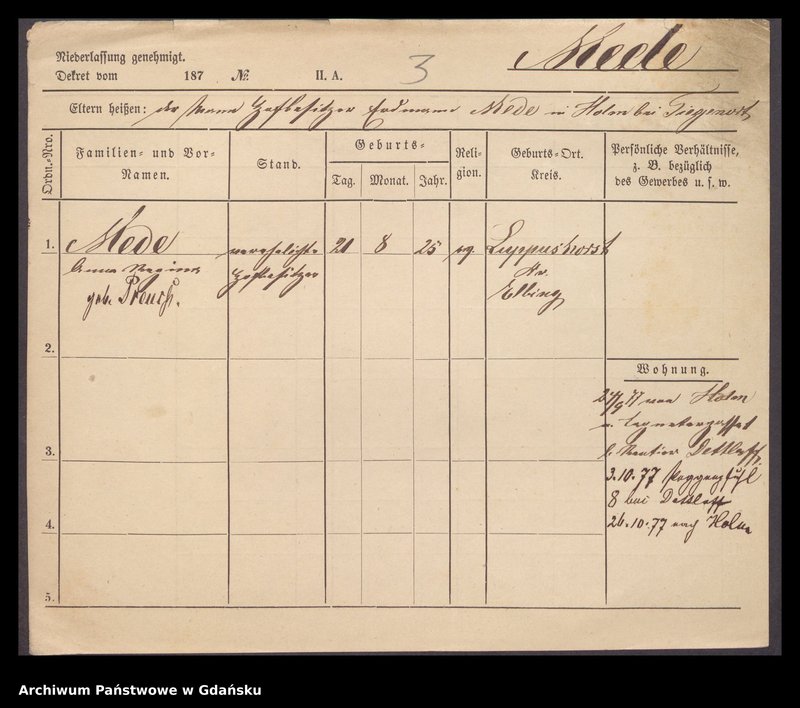 Niederlassung genehmigt.
Dekret vom 187 № II. A.
3
Mede
Eltern heißen: der Mann Hofbesitzer Erdmann Mede in Holm bei Tiegenort
Ordn.-Nro.
Familien- und Vor-
Namen.
Stand.
Geburts-
Tag. Monat. Jahr.
Reli-
gion.
Geburts-Ort.
Kreis.
Persönliche Verhältnisse,
z. B. bezüglich
des Gewerbes u. s. w.
1. Mede verehelichte 21 8 25 ev. Luppushorst
Anna Regina Hofbesitzer Kr.
geb. Preuß. Elbing
2.
Wohnung.
von Holm
3.
b. Rentier Dettlaff
3.10.77 Poggenpfuhl
8 bei Dettlaff
4.
26.10.77 nach Holm
5.
Archiwum Państwowe w Gdańsku